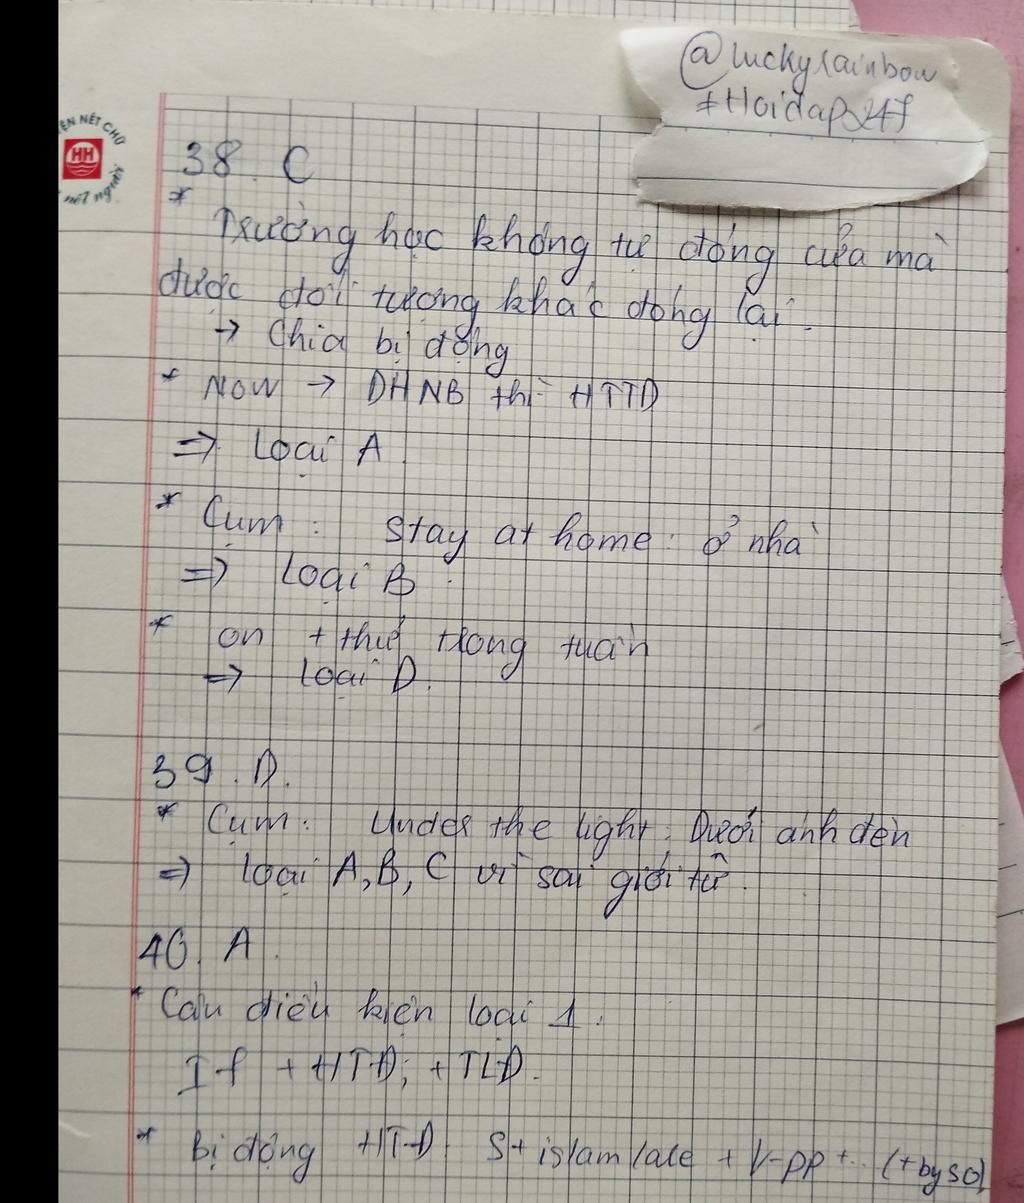 @luckyrainbow
#Hoidap247
ÊN NÉT CHỮ
HH
nết người
38. C
* Trường học không tự đóng cửa mà
được đối tượng khác đóng lại.
→ Chia bị động
* Now → DHNB thì HTTD
=> Loại A
* Cụm: Stay at home: ở nhà
=> Loại B.
* on + thứ trong tuần
=> Loại D.
39. D.
* Cụm: Under the light: Dưới ánh đèn
=> loại A, B, C vì sai giới từ.
40. A.
* Câu điều kiện loại 1.
If + HTĐ, + TLĐ.
* Bị động HTĐ S + is/am/are + V-pp + .. (+ by so)